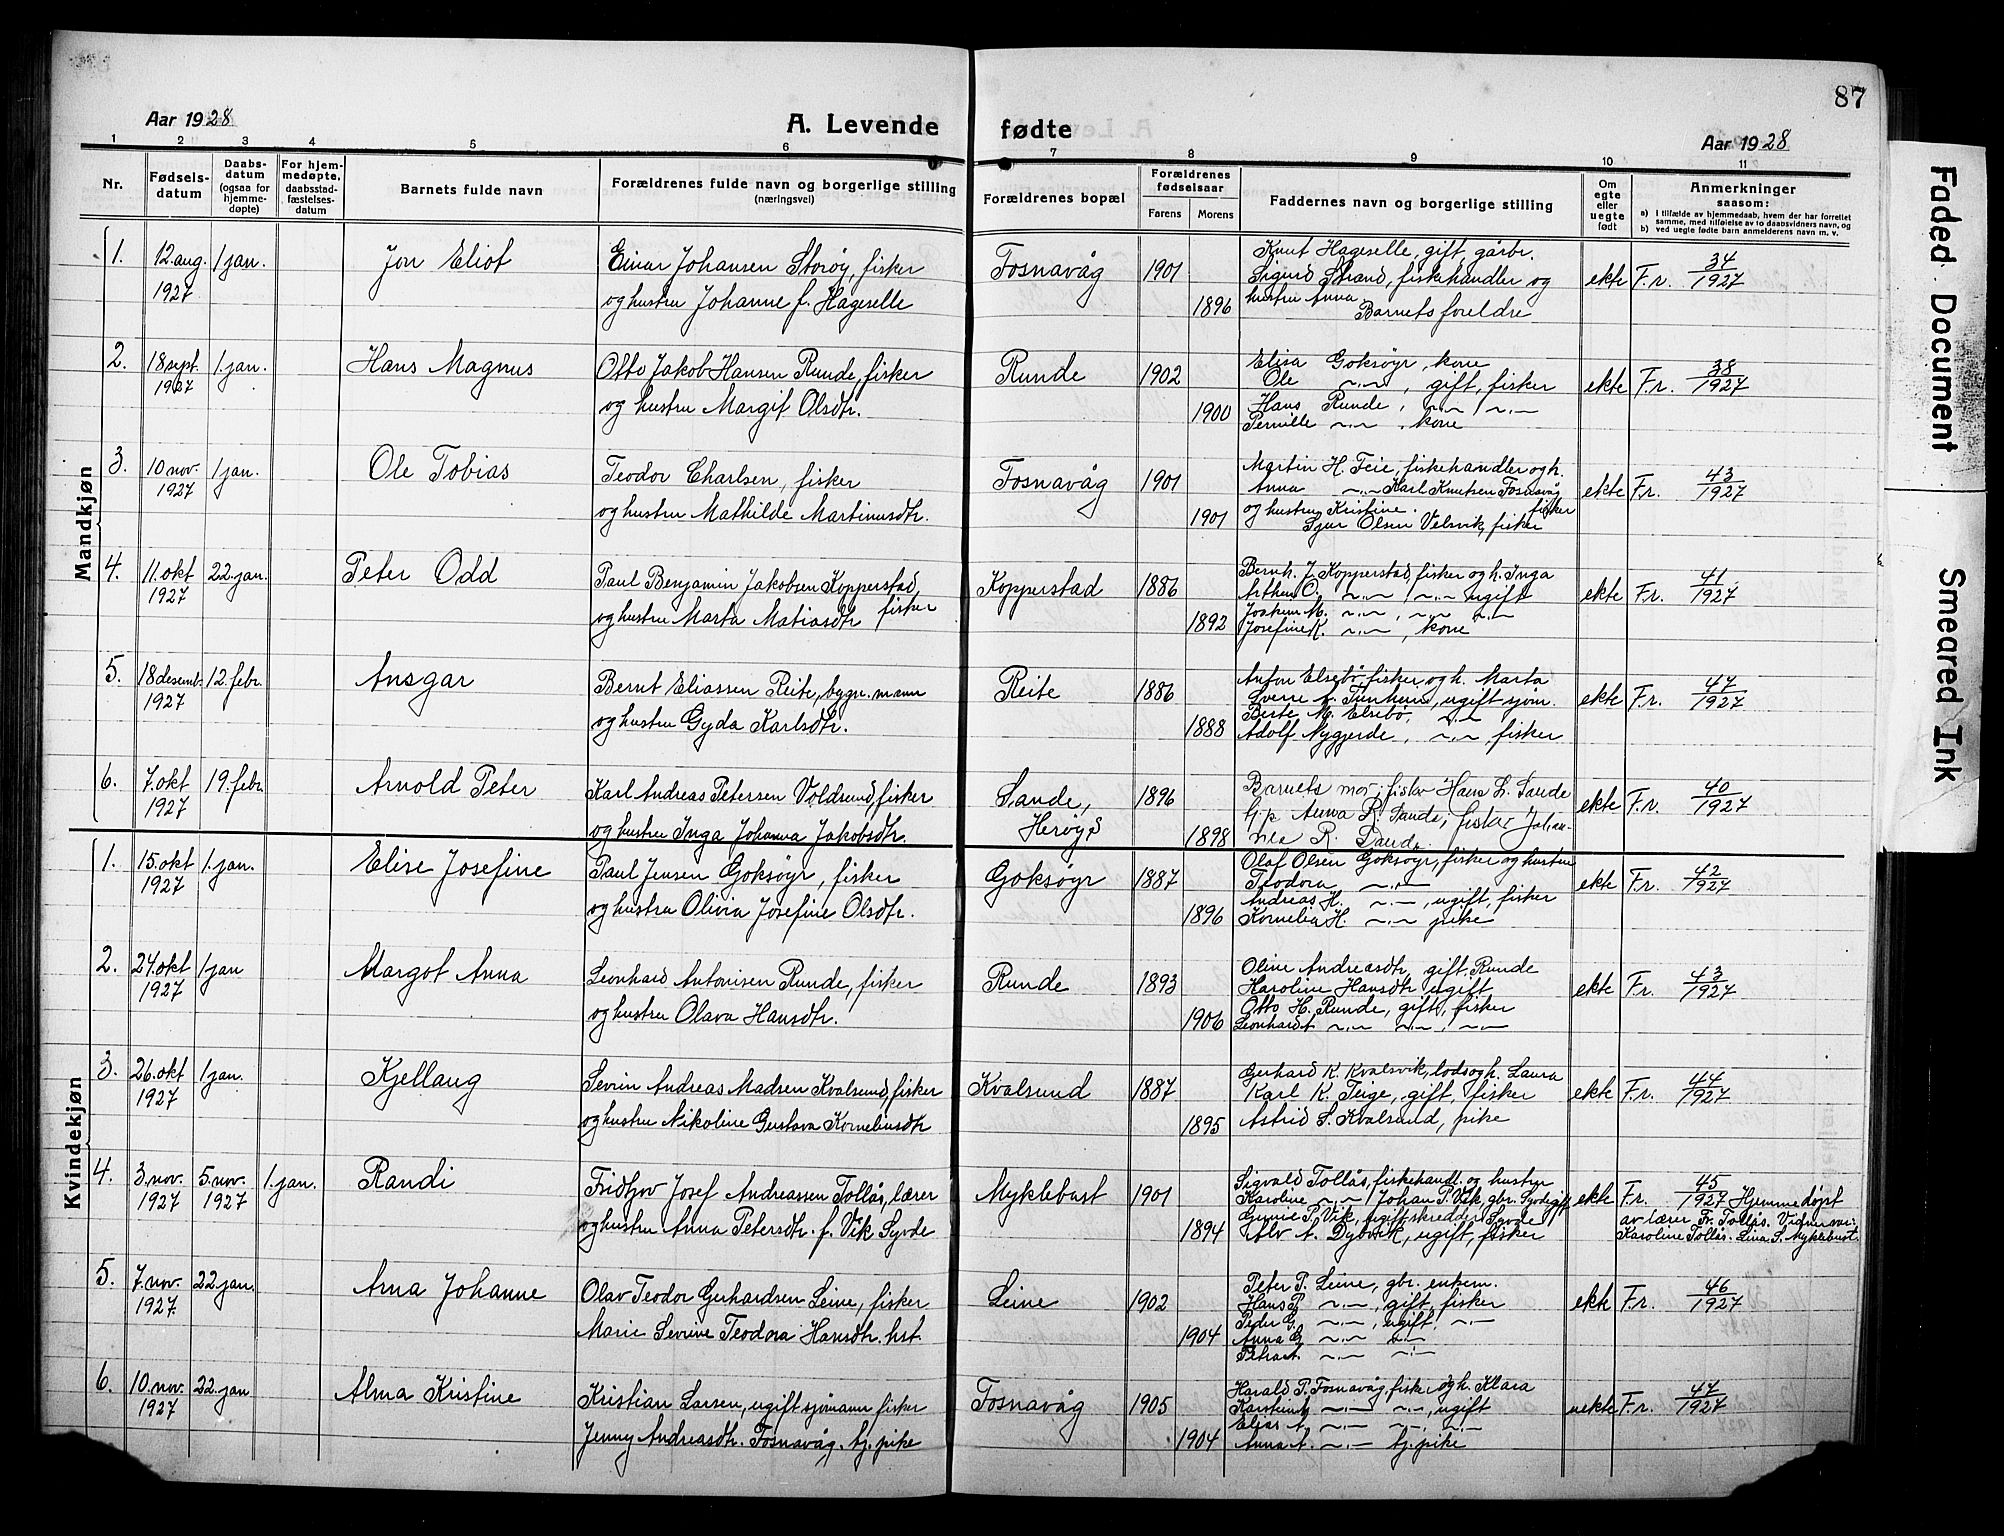 87
Aar 1928
A. Levende fødte
Aar 1928
1 2 3 4 5 6 7 8 9 10 11
Nr.
Fødsels-
datum
Daabs-
datum
(ogsaa for
hjemme-
døpte)
For hjem-
medøpte,
daabsstad-
fæstelses-
datum
Barnets fulde navn
Forældrenes fulde navn og borgerlige stilling
(næringsvei)
Forældrenes bopæl
Forældrenes
fødselsaar
Farens Morens
Faddernes navn og borgerlige stilling
Om
egte
eller
uegte
født
Anmerkninger
saasom:
a) I tilfælde av hjemmedaab, hvem der har forrettet
samme, med tilføielse av to daabsvidners navn, og
b) ved uegte fødte barn anmelderens navn m. v.
Mandkjøn
1. 12. aug. 1927 1 jan.
Jon Eliot
Einar Johansen Storøy, fisker
og hustru Johanne f. Hageselle
Fosnavåg 1901 1896
Knut Hageselle, gift, gårbr.
Sigurd Strand, fiskehandler og
hustru Anna
Barnets foreldre
ekte F.r. 34/1927
2. 18 sept. 1927 1. jan.
Hans Magnus
Otto Jakob Hansen Runde, fisker
og hustru Margit Olsdtr.
Runde 1902 1900
Elisa Goksøyr, kone
Ole ~·~, gift, fisker
Hans Runde, ~·~ / ~·~
Pernille ~·~, kone
ekte F.r. 38/1927
3. 10 nov. 1927 1 jan.
Ole Tobias
Teodor Charlsen, fisker
og hustru Mathilde Martinusdtr.
Fosnavåg 1901 1901
Martin H. Teie, fiskehandler og h.
Anna ~·~ Karl Knutsen Fosnavåg
og hustru Kristine. fisker
Sjur Olsen Velsvik, fisker
ekte F.r. 43/1927
4. 11. okt 1927 22. jan.
Peter Odd
Paul Benjamin Jakobsen Kopperstad,
fisker
og hustru Marta Matiasdtr
Kopperstad 1886 1892
Bernh. J. Kopperstad, fisker og h. Inga
Arthur O. ~·~ / ~·~ ugift
Joakim M. ~·~, ~·~ ~·~
Josefine K. ~·~, kone
ekte F.r. 41/1927
5. 18 desemb. 1927 12. febr.
Ansgar
Bernt Eliassen Reite, bygn. mann
og hustru Gyda Karlsdtr.
Reite 1886 1888
Anton Elsebø, fisker og h. Marta
Sverre A. Tunheim, ugift sjøm.
Berte M. Elsebø, ~·~
Adolf Nygjerde, ~·~ fisker
ekte F.r. 47/1927
6. 7. okt 1927 19. febr
Arnold Peter
Karl Andreas Petersen Voldsund, fisker
og hustru Inga Johanna Jakobsdtr.
Sande, Herøy 1896 1898
Barnets mor, fisker Hans L. Sande
Anna R. Sande, fisker Johan-
nes R. Sande
ekte F.r. 40/1927
Kvindekjøn
1. 15. okt 1927 1. jan.
Elise Josefine
Paul Jensen Goksøyr, fisker
og hustru Olivia Josefine Olsdtr.
Goksøyr 1887 1896
Olaf Olsen Goksøyr, fisker og hustru
Teodora ~·~
Andreas H. ~·~, ugift, fisker
Kornelia H. ~·~ pike
ekte F.r. 42/1927
2. 24. okt 1927 1 jan
Margot Anna
Leonhard Antonisen Runde, fisker
og hustru Olava Hansdtr.
Runde 1893 1906
Oline Andreasdtr, gift. Runde
Karoline Hansdtr ugift
Otto H. Runde, gift, fisker
Leonhard ~·~ ~·~, ~·~
ekte F.r. 43/1927
3. 26. okt 1927 1 jan.
Kjellaug
Sevrin Andreas Madsen Kvalsund, fisker
og hustru Nikoline Gustava Korneliusdtr
Kvalsund 1887 1895
Gerhard K. Kvalsvik, lods og h. Laura
Karl K. Teige, gift, fisker
Astrid S. Kvalsund, pike
ekte F.r. 44/1927
4. 3. nov. 1927 5. nov. 1927 1. jan.
Randi
Fridtjov Josef Andreassen Tollås, lærer
og hustru Anna Petersdtr. f. Vik Syvde
Myklebust 1901 1894
Sigvald Tollås, fiskehandl. og hustru
Karoline ~·~ / Johan P. Vik, gbr. Syvde gift
P. Vik, ugift skredder Syvde
A. Dybvik, ugift, fisker
ekte F.r. 45/1927 Hjemmedøpt
av lærer Fr. Tollås. Vidner var:
Karoline Tollås. Lina S. Myklebust.
5. 7. nov. 1927 22 jan.
Arna Johanne
Olav Teodor Gerhardsen Leine, fisker
Marie Sevrine Teodora Hansdtr. hst.
Leine 1902 1904
Peter P. Leine, gbr. enkem.
Hans P. ~·~, gift, fisker
Peder G. ~·~, ugift, ~·~
Anna G. ~·~ ~·~
Petra A. ~·~ ~·~
ekte F.r. 46/1927
6. 10. nov. 1927 22. jan
Alma Kristine
Kristian Larsen, ugift sjømann fisker
Jenny Andreasdtr. Fosnavåg, tj. pike
Fosnavåg 1905 1904
Harald P. Fosnavåg, fisker og h. Klara
~·~ ~·~, ugift
Elias A. ~·~ ~·~, ~·~
Anna A. ~·~ tj. pike
uekte F.r. 47/1927
Faded Document
Smeared Ink